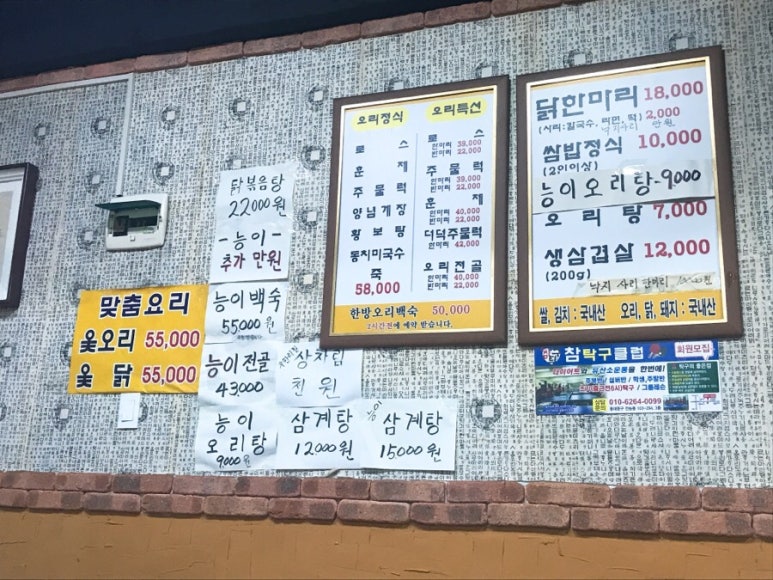 맞춤요리
옻오리 55,000
옻 닭 55,000
닭볶음탕
22,000원
-능이-
추가 만원
능이백숙
55,000원
능이전골
43,000
능이
오리탕
9000원
상차림
천원
삼계탕
12000원
능이
삼계탕
15000원
오리정식
로스
훈제
주물럭
양념게장
황보탕
동치미국수
죽
58,000
오리특선
로스
한마리 39,000
반마리 22,000
주물럭
한마리 39,000
반마리 22,000
훈제
한마리 40,000
반마리 22,000
더덕주물럭
한마리 42,000
오리전골
한마리 40,000
반마리 22,000
한방오리백숙 50,000
2시간전에 예약 받습니다.
닭한마리 18,000
(사리:칼국수, 라면, 떡) 2,000
낙지사리 만원
쌈밥정식 10,000
(2인이상)
능이오리탕-9,000
오리탕 7,000
생삼겹살 12,000
(200g)
낙지 사리 한마리
쌀, 김치 : 국내산 오리, 닭, 돼지 : 국내산
참탁구클럽 회원모집
다이어트와 유산소운동을 한번에!
탁구의 좋은점
상담문의 010-6264-0099